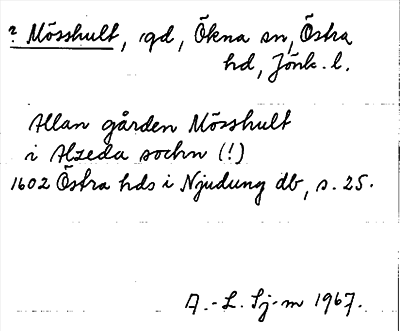 ? Mösshult, gd, Ökna sn, Östra
hd, Jönk. l.
Allan gården Mösshult
i Alzeda sochn (!)
1602 Östra hds i Njudung db, s. 25.
A.-L. Sj-m 1967.